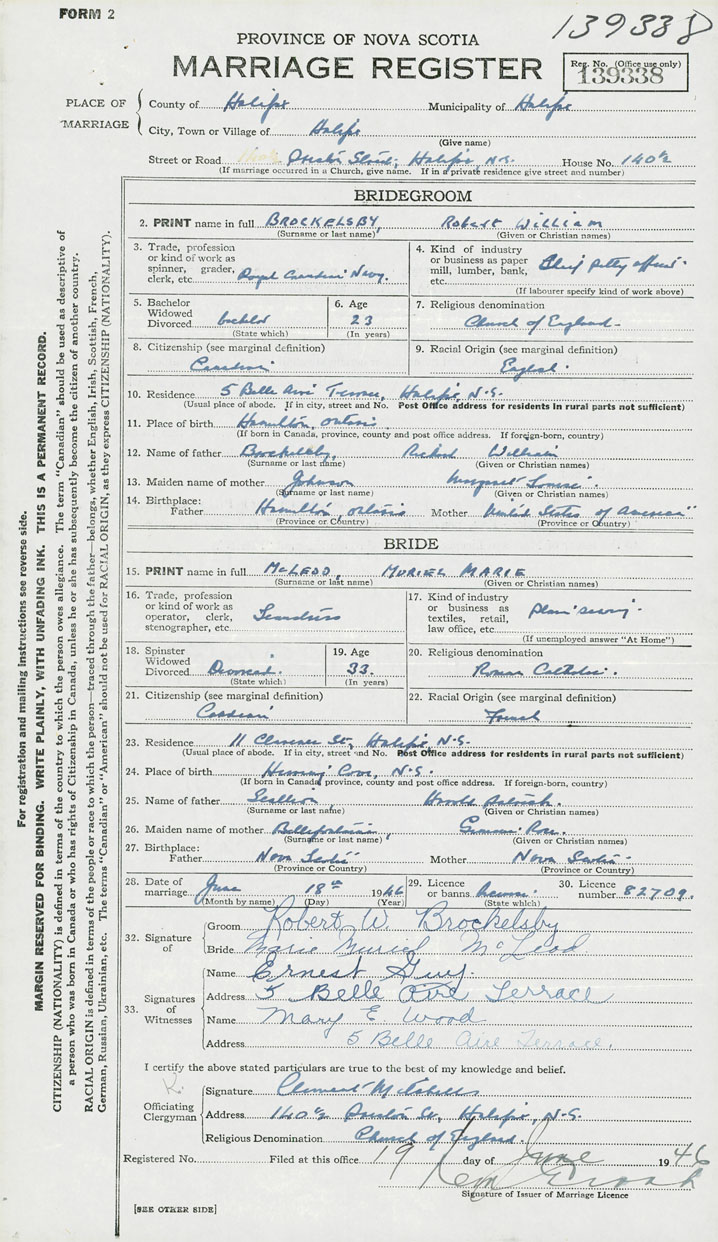 FORM 2
139338
PROVINCE OF NOVA SCOTIA
MARRIAGE REGISTER
Reg. No. (Office use only)
139338
PLACE OF MARRIAGE
County of Halifax Municipality of Halifax
City, Town or Village of Halifax
(Give name)
Street or Road Preston Street, Halifax, N.S. House No. 140½
(If marriage occurred in a Church, give name. If in a private residence give street and number)
BRIDEGROOM
2. PRINT name in full BROCKELSBY, Robert William
(Surname or last name) (Given or Christian names)
3. Trade, profession or kind of work as spinner, grader, clerk, etc. Royal Canadian Navy.
4. Kind of industry or business as paper mill, lumber, bank, etc. Chief petty officer.
(If labourer specify kind of work above)
5. Bachelor Widowed Divorced bachelor
(State which)
6. Age 23
(In years)
7. Religious denomination Church of England
8. Citizenship (see marginal definition) Canadian
9. Racial Origin (see marginal definition) English.
10. Residence 5 Belle Aire Terrace, Halifax, N.S.
(Usual place of abode. If in city, street and No. Post Office address for residents in rural parts not sufficient)
11. Place of birth Hamilton, Ontario
(If born in Canada, province, county and post office address. If foreign-born, country)
12. Name of father Brockelsby, William
(Surname or last name) (Given or Christian names)
13. Maiden name of mother Johnson Margaret Louise
(Surname or last name) (Given or Christian names)
14. Birthplace: Father Hamilton, Ontario Mother United States of America
(Province or Country) (Province or Country)
BRIDE
15. PRINT name in full McLEOD, MURIEL MARIE
(Surname or last name) (Given or Christian names)
16. Trade, profession or kind of work as operator, clerk, stenographer, etc. Seamstress
17. Kind of industry or business as textiles, retail, law office, etc. plain sewing.
(If unemployed answer "At Home")
18. Spinster Widowed Divorced Divorced.
(State which)
19. Age 33.
(In years)
20. Religious denomination Roman Catholic.
21. Citizenship (see marginal definition) Canadian
22. Racial Origin (see marginal definition) French
23. Residence 11 St., Halifax, N.S.
(Usual place of abode. If in city, street and No. Post Office address for residents in rural parts not sufficient)
24. Place of birth Herring Cove, N.S.
(If born in Canada, province, county and post office address. If foreign-born, country)
25. Name of father
(Surname or last name) (Given or Christian names)
26. Maiden name of mother Rose.
(Surname or last name) (Given or Christian names)
27. Birthplace: Father Nova Scotia Mother Nova Scotia
(Province or Country) (Province or Country)
28. Date of marriage June 18th 1946
(Month by name) (Day) (Year)
29. Licence or banns License
(State which)
30. Licence number 82709.
32. Signature of
Groom Robert W. Brockelsby
Bride Marie Muriel McLeod
33. Signatures of Witnesses
Name Ernest Guy.
Address 5 Belle Aire Terrace
Name Mary E Wood
Address 5 Belle Aire Terrace.
I certify the above stated particulars are true to the best of my knowledge and belief.
Officiating Clergyman
Signature Clement
Address 140½ Preston St, Halifax, N.S.
Religious Denomination Church of England.
Registered No. Filed at this office 19 day of June 1946
Signature of Issuer of Marriage Licence
[SEE OTHER SIDE]
For registration and mailing instructions see reverse side.
MARGIN RESERVED FOR BINDING. WRITE PLAINLY, WITH UNFADING INK. THIS IS A PERMANENT RECORD.
CITIZENSHIP (NATIONALITY) is defined in terms of the country to which the person owes allegiance. The term "Canadian" should be used as descriptive of
a person who was born in Canada or who has rights of Citizenship in Canada, unless he or she has subsequently become the citizen of another country.
RACIAL ORIGIN is defined in terms of the people or race to which the person—traced through the father—belongs, whether English, Irish, Scottish, French,
German, Russian, Ukrainian, etc. The terms "Canadian" or "American" should not be used for RACIAL ORIGIN, as they express CITIZENSHIP (NATIONALITY).